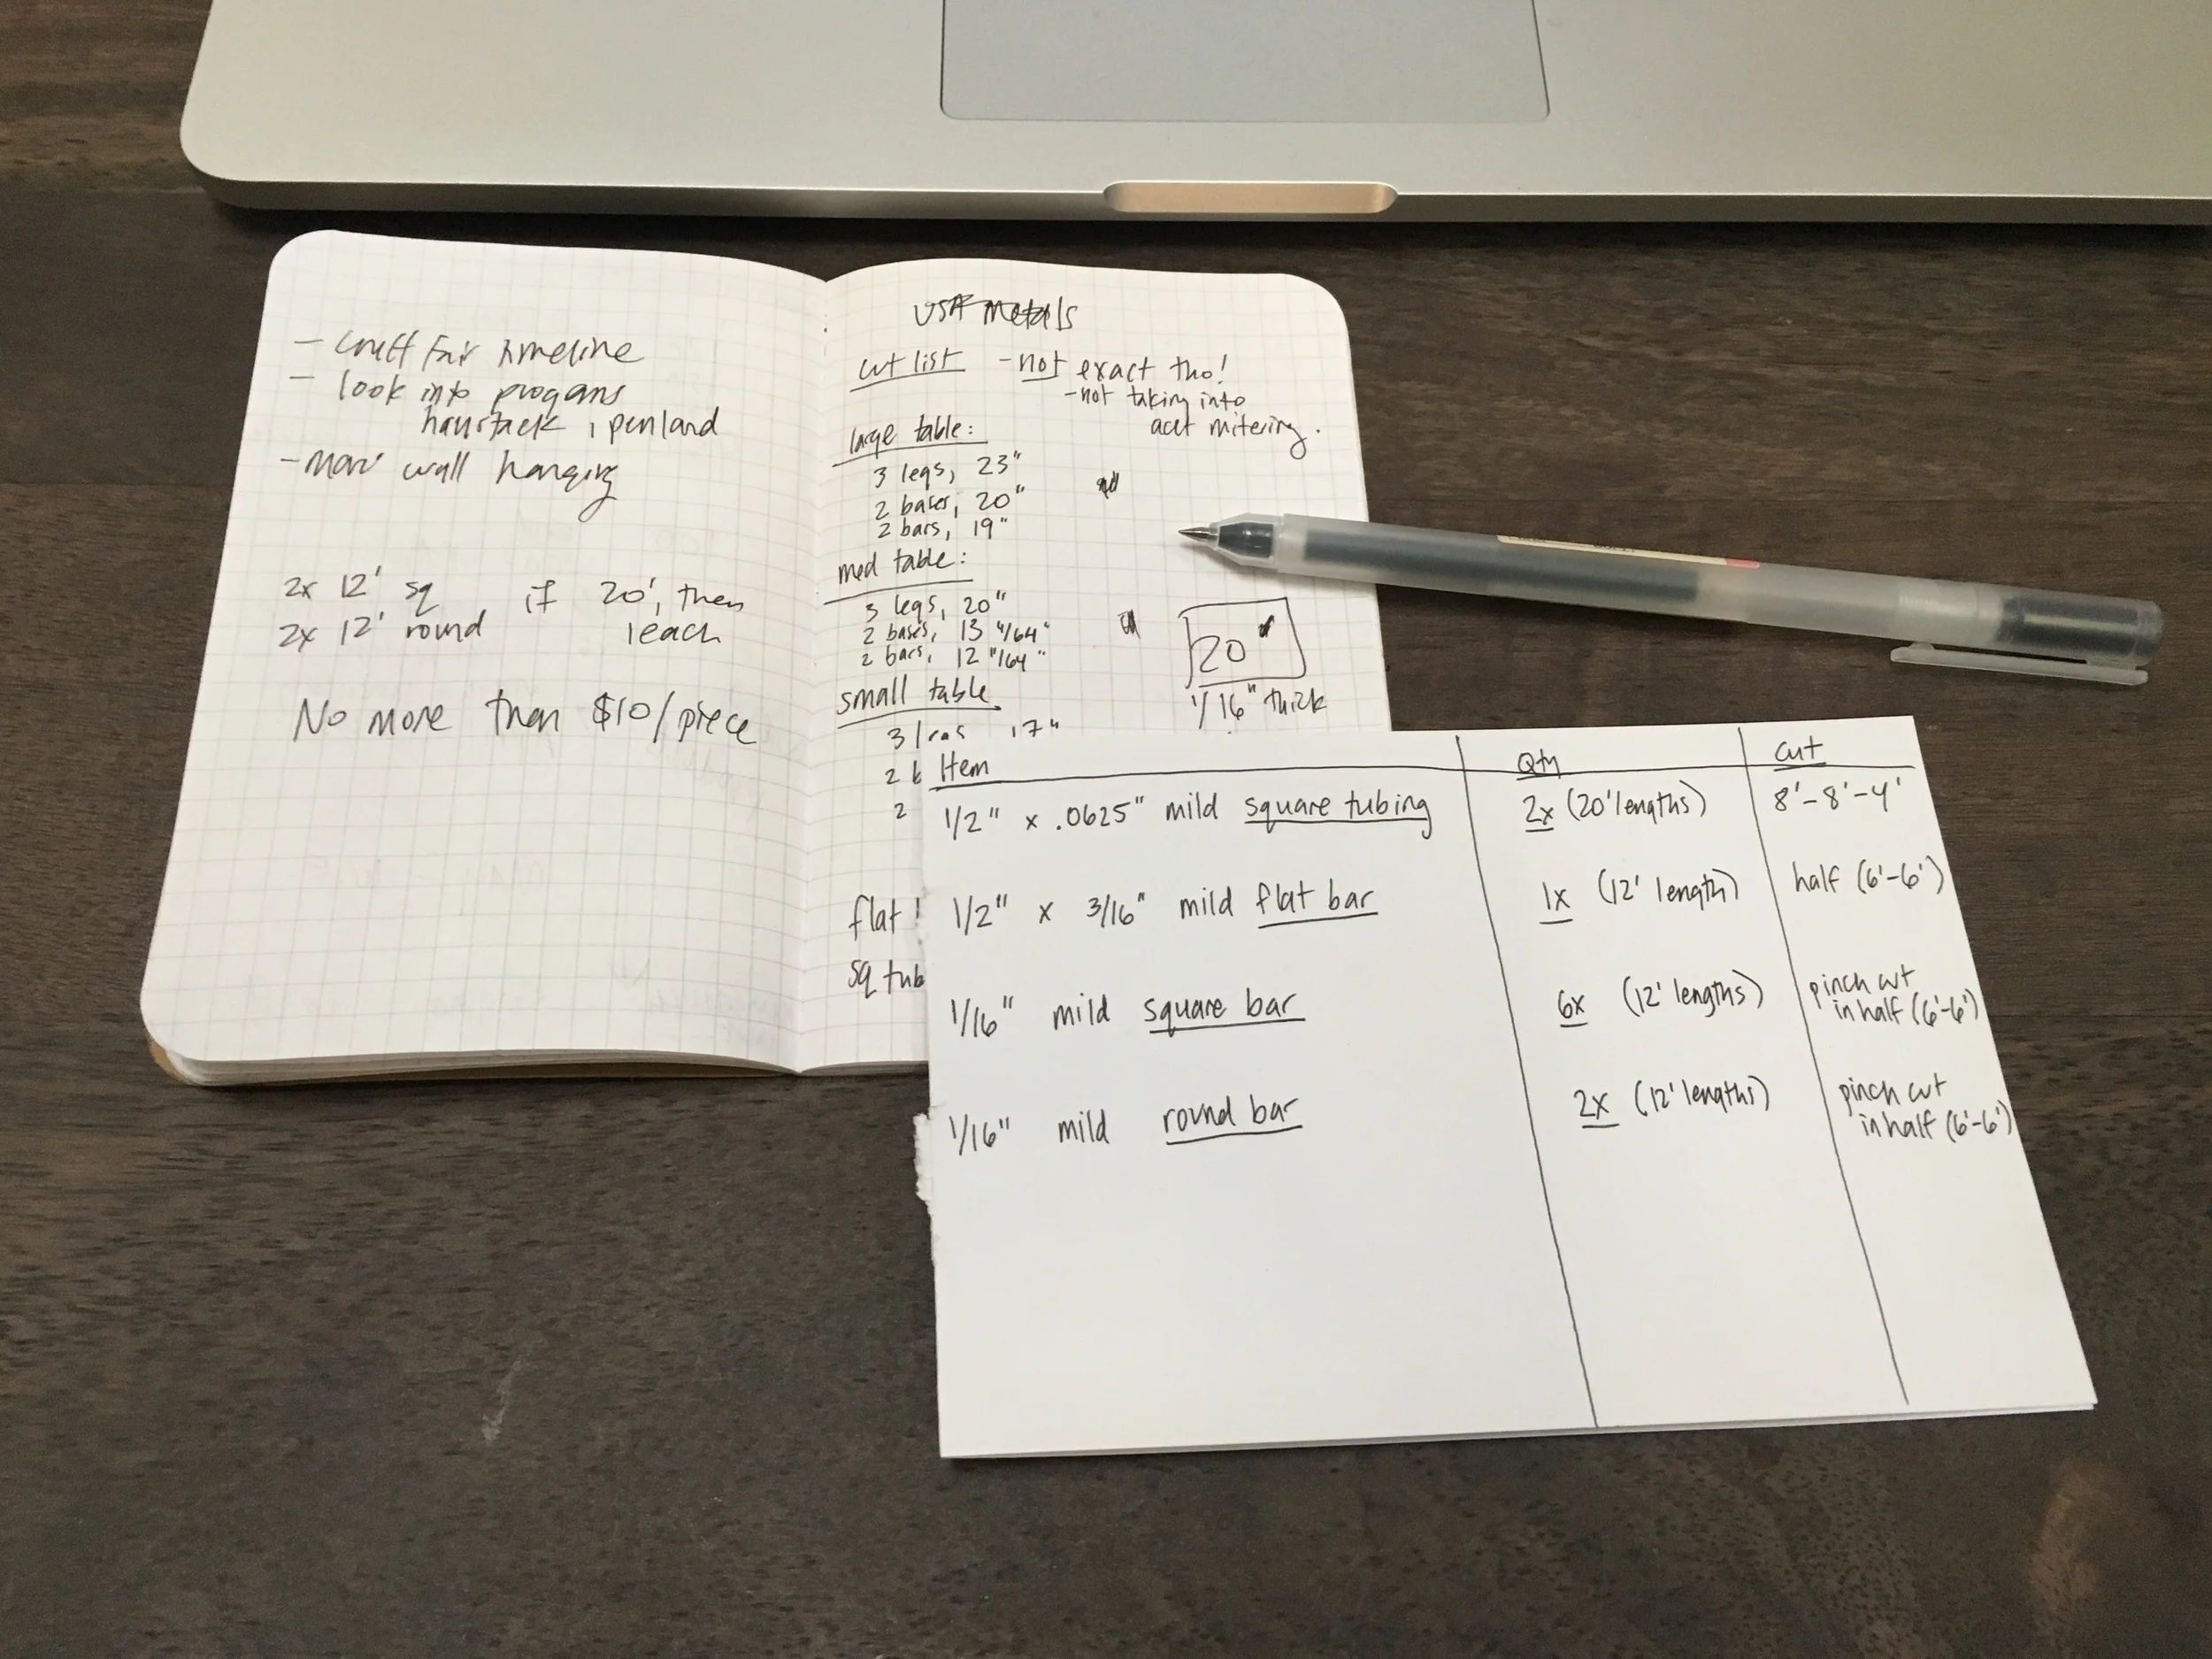 - craft fair timeline
- look into progams
haystack, penland
- more wall hanging
2x 12' sq if 20', then
2x 12' round 1 each
No more than $10/piece
USA Metals
cut list - not exact tho!
- not taking into
acct mitering.
large table:
3 legs, 23"
2 bases, 20"
2 bars, 19"
med table:
3 legs, 20"
2 bases, 13 11/64"
2 bars, 12 11/64"
20"
1/16" thick
small table
3 legs 17"
2 b
2
flat
sq tub
Item Qty cut
1/2" x .0625" mild square tubing 2x (20' lengths) 8'-8'-4'
1/2" x 3/16" mild flat bar 1x (12' length) half (6'-6')
1/16" mild square bar 6x (12' lengths) pinch cut
in half (6'-6')
1/16" mild round bar 2x (12' lengths) pinch cut
in half (6'-6')